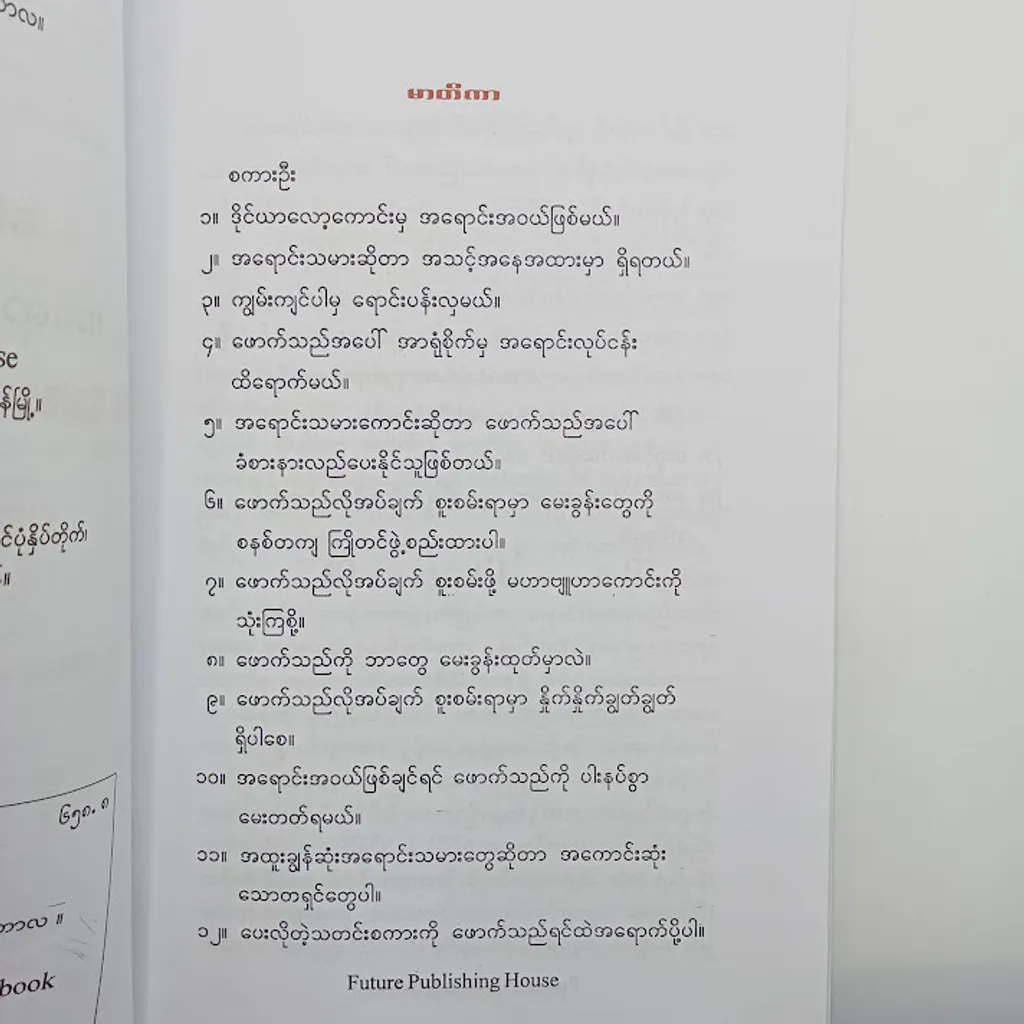 ာလ။
se
န်မြို့။
င်ပုံနှိပ်တိုက်၊
၆၅၈. ၈
book
မာတိကာ
စကားဦး
၁။ ဒိုင်ယာလော့ကောင်းမှ အရောင်းအဝယ်ဖြစ်မယ်။
၂။ အရောင်းသမားဆိုတာ အသင့်အနေအထားမှာ ရှိရတယ်။
၃။ ကျွမ်းကျင်ပါမှ ရောင်းပန်းလှမယ်။
၄။ ဖောက်သည်အပေါ် အာရုံစိုက်မှ အရောင်းလုပ်ငန်း
ထိရောက်မယ်။
၅။ အရောင်းသမားကောင်းဆိုတာ ဖောက်သည်အပေါ်
ခံစားနားလည်ပေးနိုင်သူဖြစ်တယ်။
၆။ ဖောက်သည်လိုအပ်ချက် စူးစမ်းရာမှာ မေးခွန်းတွေကို
စနစ်တကျ ကြိုတင်ဖွဲ့စည်းထားပါ။
၇။ ဖောက်သည်လိုအပ်ချက် စူးစမ်းဖို့ မဟာဗျူဟာကောင်းကို
သုံးကြစို့။
၈။ ဖောက်သည်ကို ဘာတွေ မေးခွန်းထုတ်မှာလဲ။
၉။ ဖောက်သည်လိုအပ်ချက် စူးစမ်းရာမှာ နှိုက်နှိုက်ချွတ်ချွတ်
ရှိပါစေ။
၁၀။ အရောင်းအဝယ်ဖြစ်ချင်ရင် ဖောက်သည်ကို ပါးနပ်စွာ
မေးတတ်ရမယ်။
၁၁။ အထူးချွန်ဆုံးအရောင်းသမားတွေဆိုတာ အကောင်းဆုံး
သောတရှင်တွေပါ။
၁၂။ ပေးလိုတဲ့သတင်းစကားကို ဖောက်သည်ရင်ထဲအရောက်ပို့ပါ။
Future Publishing House